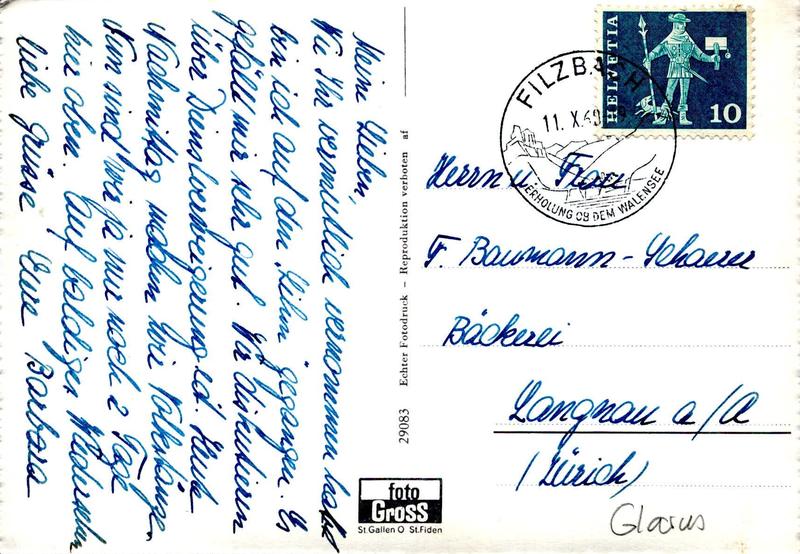 Meine Lieben,
Wie Ihr vermutlich vernommen habt
bin ich auf den "Lihn" gegangen. Es
gefällt mir sehr gut. Wir diskutieren
über Dienstverweigerung ect. Heute
Nachmittag machen wir Volkstänze.
Nun sind wir ja nur noch 2 Tage
hier oben. Auf baldiges Wiedersehn
liebe Grüsse Eure Barbara
29083 Echter Fotodruck – Reproduktion verboten af
foto
GROSS
St. Gallen O St. Fiden
HELVETIA
10
FILZBACH
11. X. 69
ERHOLUNG OB DEM WALENSEE
Herrn u. Frau
F. Baumann-Schaerer
Bäckerei
Langnau a/A
(Zürich)
Glarus